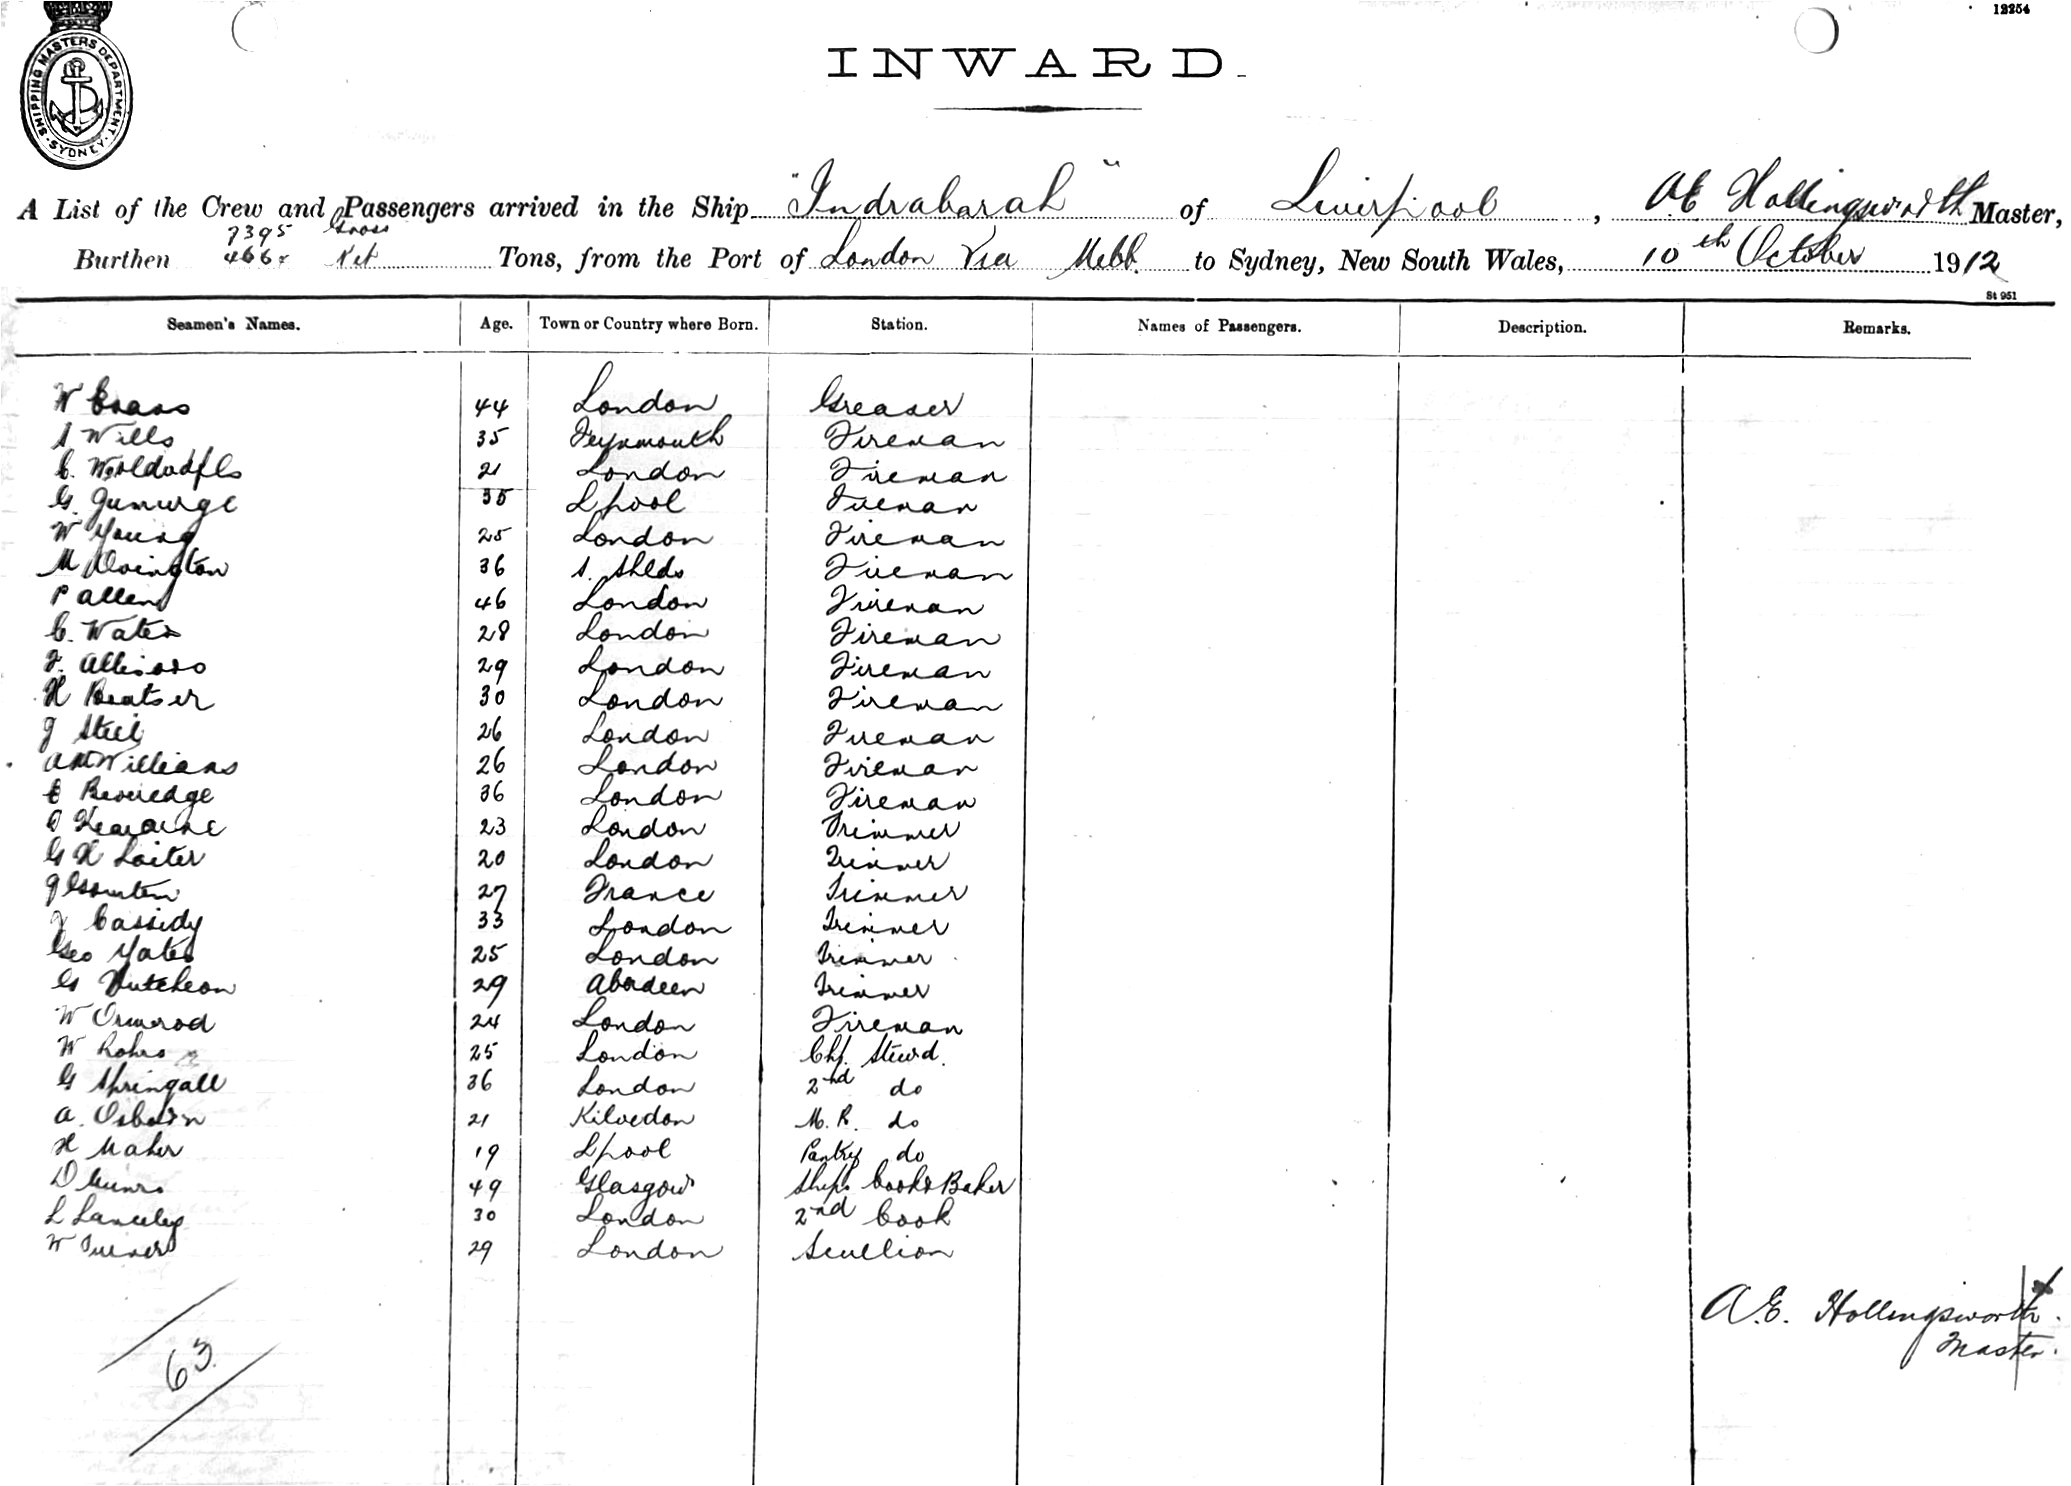 12254
SHIPPING MASTERS DEPARTMENT · SYDNEY ·
INWARD.
A List of the Crew and Passengers arrived in the Ship "Indrabarah" of Liverpool, A.E. Hollingsworth Master,
7395 Gross
Burthen Net Tons, from the Port of London Via Melb. to Sydney, New South Wales, 10th October 1912
St 951
Seamen's Names. Age. Town or Country where Born. Station. Names of Passengers. Description. Remarks.
W Evans 44 London Greaser
S Wills 35 Teynmouth Fireman
C. 21 London Fireman
G. 35 Lpool Fireman
W Young 25 London Fireman
M Ovington 36 S. Shlds Fireman
P Allen 46 London Fireman
C. Wates 28 London Fireman
F. Allisoso 29 London Fireman
H Beatser 30 London Fireman
J Steil 26 London Fireman
A McWilliams 26 London Fireman
E Beveredge 36 London Fireman
23 London Trimmer
G H Loiter 20 London Trimmer
J 27 France Trimmer
J Cassidy 33 London Trimmer
Geo Yates 25 London Trimmer
G Hutcheon 29 Aberdeen Trimmer
W Ormerod 24 London Fireman
W Rohrs 25 London Chf. Stewd.
G Springall 36 London 2nd do
A. Osborn 21 Kilvedon M. R. do
H Maher 19 Lpool Pantry do
D Munro 49 Glasgow Ships Cook & Baker
L Lanceley 30 London 2nd Cook
W Turner 29 London Scullion
A.E. Hollingsworth.
Master.
63